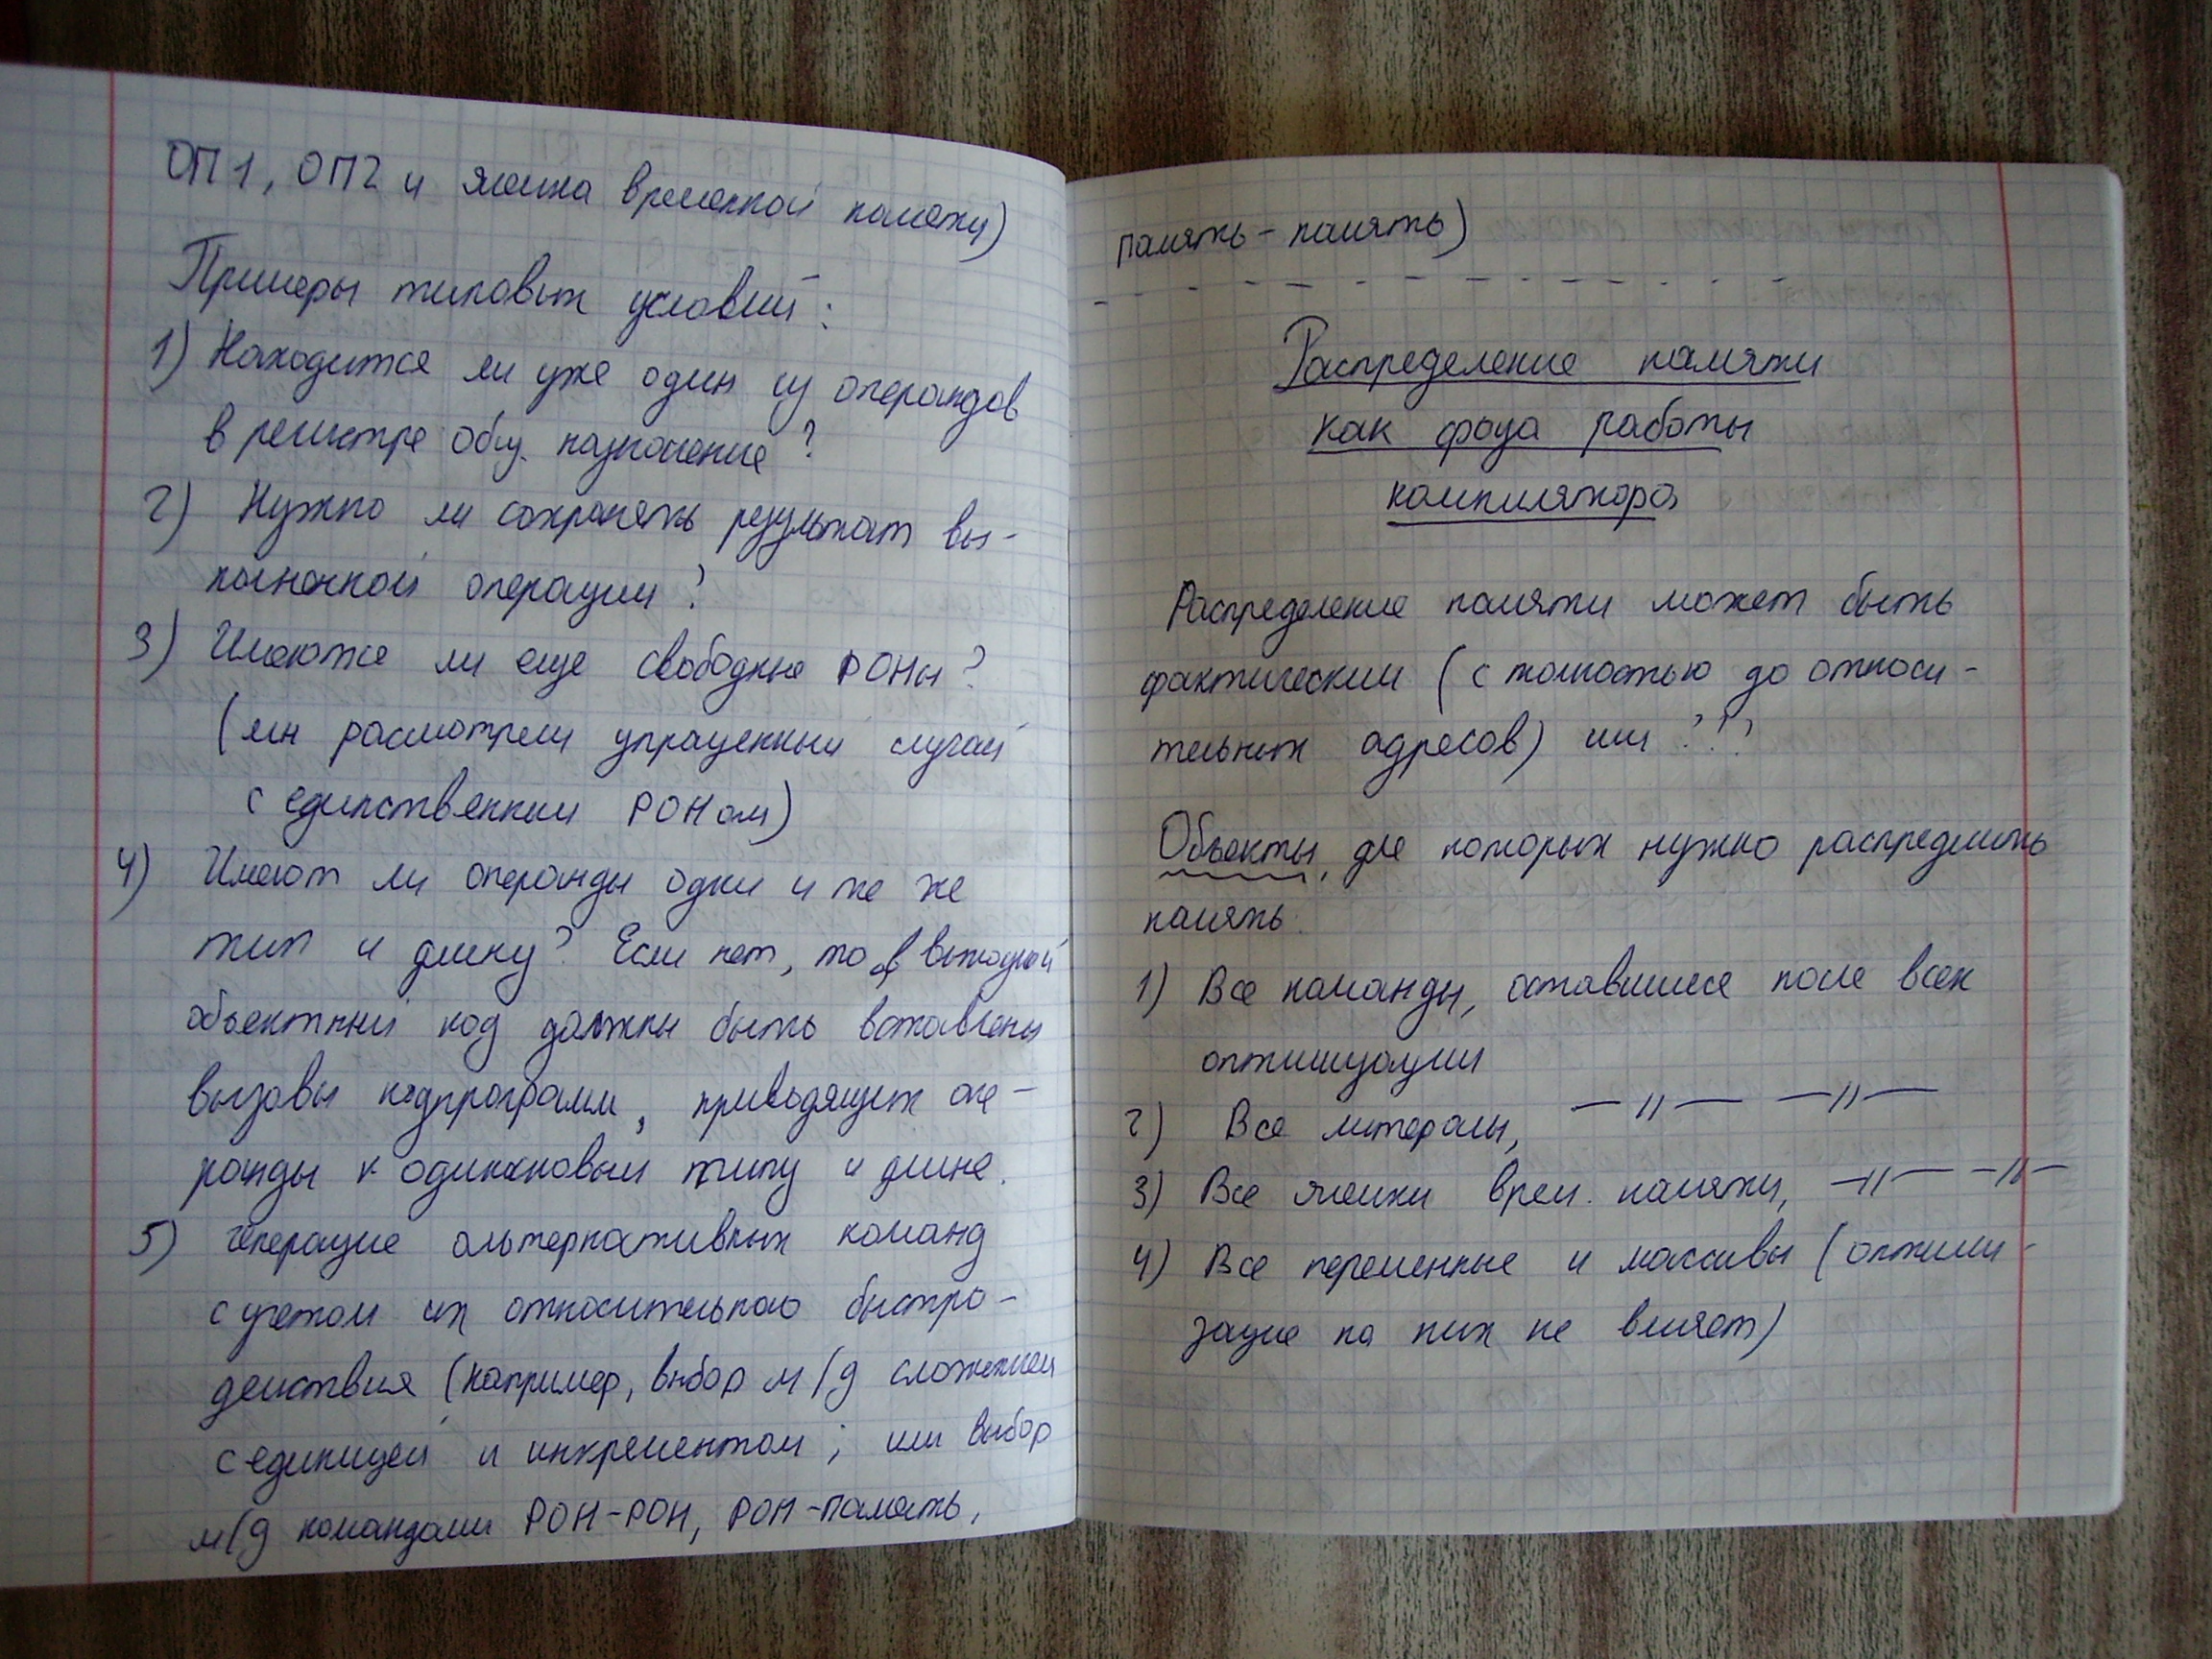 ОП1, ОП2 и ячейка временной памяти)
Примеры типовых условий:
1) Находится ли уже один из операндов
в регистре общ. назначения?
2) Нужно ли сохранять результат вы-
полненной операции?
3) Имеются ли еще свободные РОНы?
(мы рассмотрели упрощенный случай
с единственным РОНом)
4) Имеют ли операнды одни и те же
тип и длину? Если нет, то в выходной
объектный код должны быть вставлены
вызовы подпрограмм, приводящих опе-
ранды к одинаковым типу и длине.
5) Генерация альтернативных команд
с учетом их относительного быстро-
действия (например, выбор м/д сложением
с единицей и инкрементом; или выбор
м/д командами РОН-РОН, РОН-память,
память-память)
Распределение памяти
как фаза работы
компилятора
Распределение памяти может быть
фактическим (с точностью до относи-
тельных адресов) или ???
Объекты, для которых нужно распределить
память:
1) Все команды, оставшиеся после всех
оптимизации
2) Все литералы, —〃— —〃—
3) Все ячейки врем. памяти, —〃— —〃—
4) Все переменные и массивы (оптими-
зация на них не влияет)